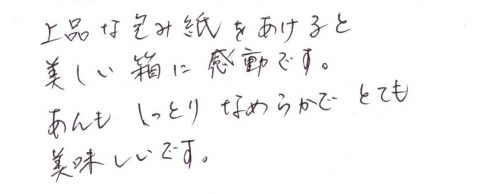 上品な包み紙をあけると
美しい箱に感動です。
あんもしっとりなめらかでとても
美味しいです。